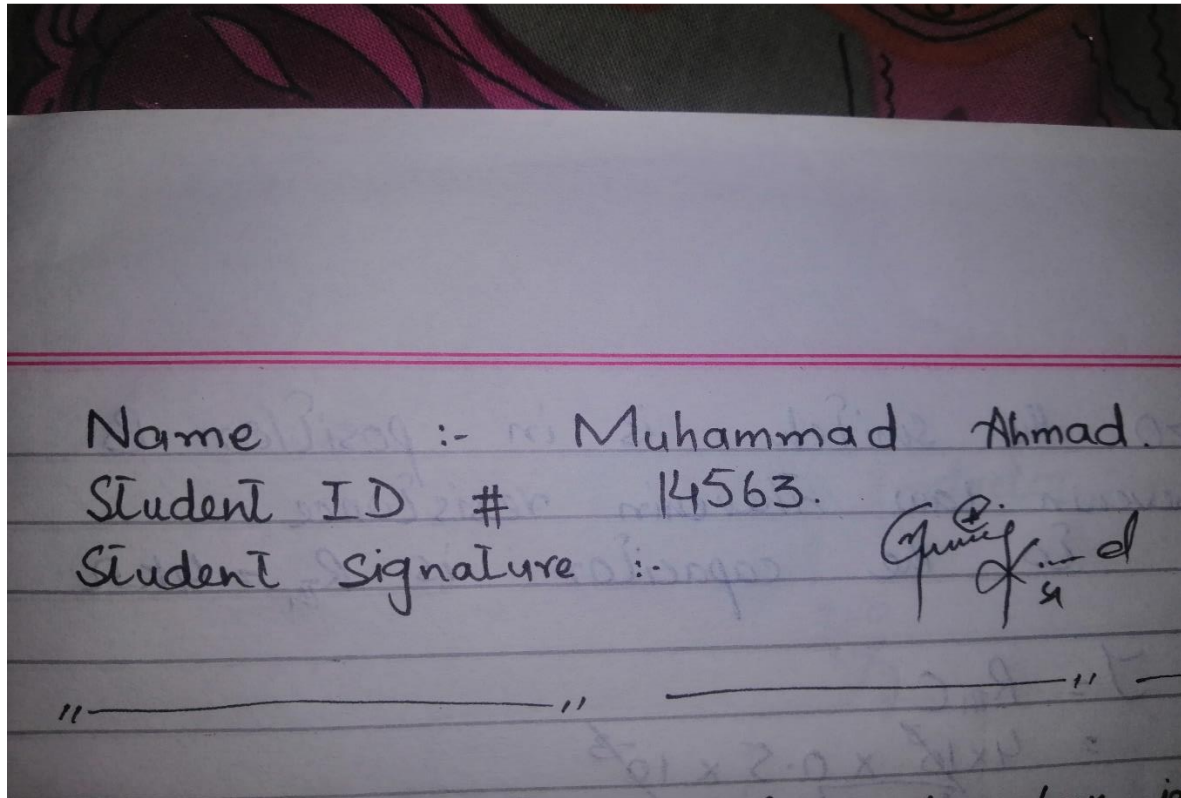 Name :- Muhammad Ahmad.
Student ID # 14563.
Student signature :-